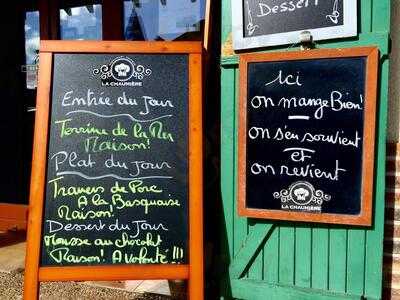 LA CHAUMIÈRE
Entrée du Jour
Terrine de la Mer
Maison!
Plat du Jour
Travers de Porc
A la Basquaise
Maison!
Dessert du Jour
Mousse au chocolat
Maison! A Volonté !!!
Dessert
Ici
on mange Bien!
on s'en souvient
et
on revient
LA CHAUMIÈRE